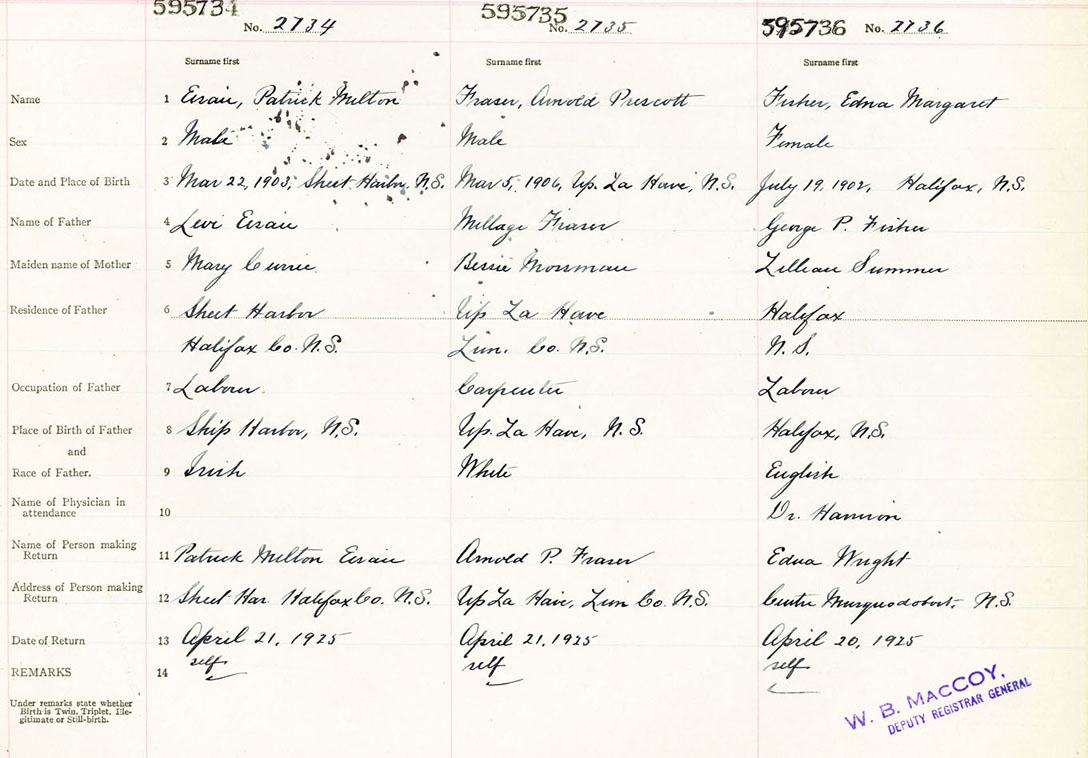 595734 595735 595736
No. 2734 No. 2735 No. 2736
Surname first Surname first Surname first
Name 1 Eisan, Patrick Milton Fraser, Arnold Prescott Fisher, Edna Margaret
Sex 2 Male Male Female
Date and Place of Birth 3 Mar 22, 1903, Sheet Harbor, N.S. Mar 5, 1906, Up. La Have, N.S. July 19, 1902, Halifax, N.S.
Name of Father 4 Levi Eisan Millage Fraser George P. Fisher
Maiden name of Mother 5 Mary Currie Bessie Mossman Lillian Summer
Residence of Father 6 Sheet Harbor Up La Have Halifax
Halifax Co. N.S. Lun. Co. N.S. N.S.
Occupation of Father 7 Labour Carpenter Labour
Place of Birth of Father 8 Ship Harbor, N.S. Up. La Have, N.S. Halifax, N.S.
and
Race of Father. 9 Irish White English
Name of Physician in
attendance 10 Dr. Harrison
Name of Person making
Return 11 Patrick Milton Eisan Arnold P. Fraser Edna Wright
Address of Person making
Return 12 Sheet Har Halifax Co. N.S. Up La Have, Lun Co. N.S. Centre Musquodoboit, N.S.
Date of Return 13 April 21, 1925 April 21, 1925 April 20, 1925
REMARKS 14 self self self
Under remarks state whether
Birth is Twin, Triplet, Ille-
gitimate or Still-birth.
W. B. MACCOY,
DEPUTY REGISTRAR GENERAL